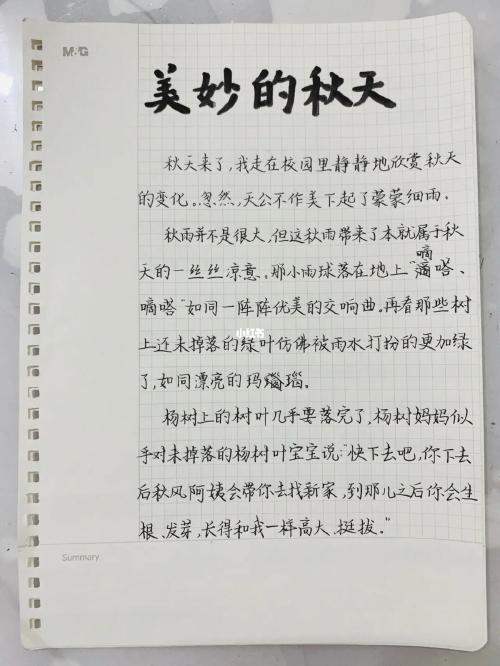 M&G
美妙的秋天
秋天来了，我走在校园里静静地欣赏秋天
的变化。忽然，天公不作美下起了蒙蒙细雨。
秋雨并不是很大，但这秋雨带来了本就属于秋
天的一丝丝凉意，那小雨球落在地上“嘀嗒、
嘀嗒”如同一阵阵优美的交响曲。再看那些树
上还未掉落的绿叶仿佛被雨水打扮的更加绿
了，如同漂亮的玛瑙。
杨树上的树叶几乎要落完了，杨树妈妈似
乎对未掉落的杨树叶宝宝说：“快下去吧，你下去
后秋风阿姨会带你去找新家，到那儿之后你会生
根、发芽，长得和我一样高大、挺拔。”
小红书
Summary